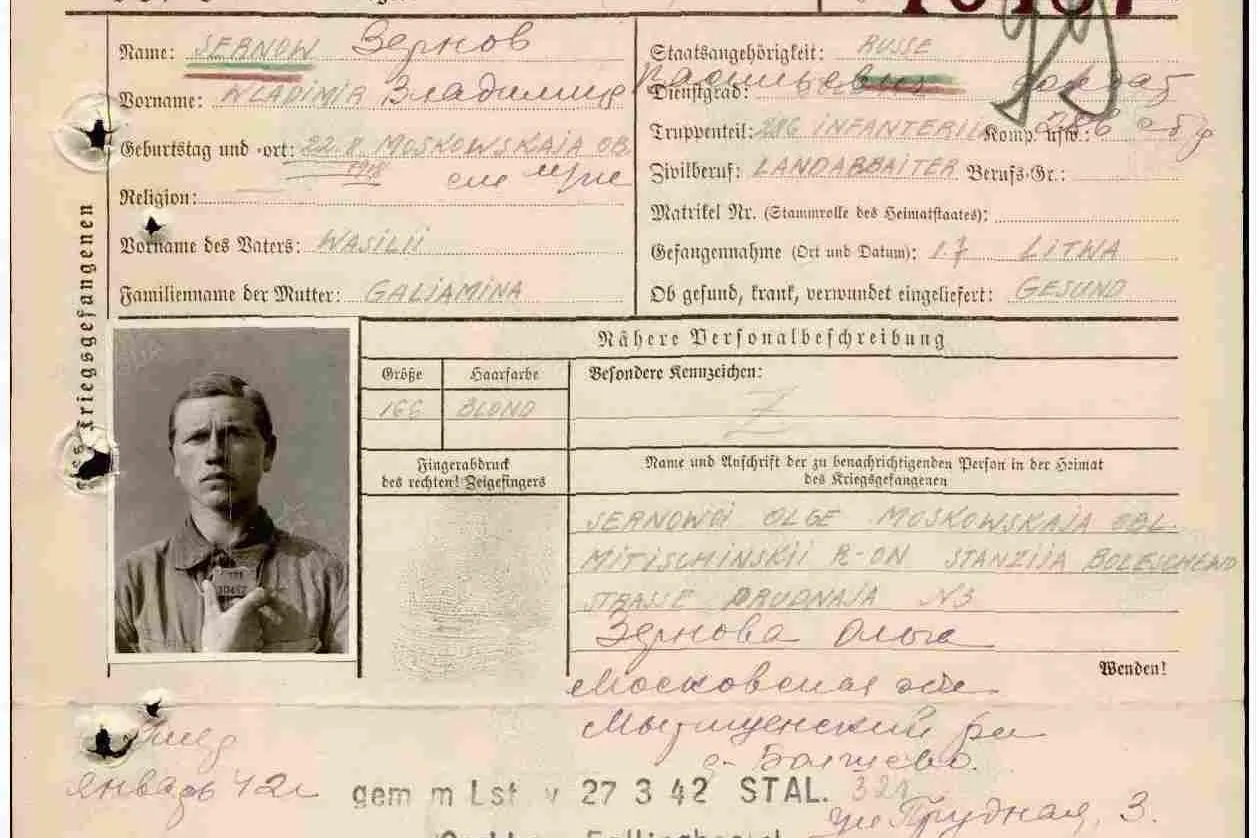 Name: SERNOW Зернов
Staatsangehörigkeit: RUSSE
Vorname: WLADIMIR Владимир Васильевич
Dienstgrad: солдат
Geburtstag und -ort: 22.8. MOSKOWSKAJA OB.
1918
Truppenteil: 286 INFANTERII Komp. usw.: 286
Religion:
Zivilberuf: LANDARBAITER Berufs-Gr.:
Matrikel Nr. (Stammrolle des Heimatstaates):
Vorname des Vaters: WASILII
Gefangennahme (Ort und Datum): 1.7 LITWA
Familienname der Mutter: GALIAMINA
Ob gesund, krank, verwundet eingeliefert: GESUND
des Kriegsgefangenen
Nähere Personalbeschreibung
Größe
Haarfarbe
Besondere Kennzeichen:
166
BLOND
Fingerabdruck
des rechten! Zeigefingers
Name und Anschrift der zu benachrichtigenden Person in der Heimat
des Kriegsgefangenen
SERNOWOI OLGE MOSKOWSKAJA OBL.
MITISCHINSKII R-ON STANZIJA BOLESCHEWO
STRASSE PRUDNAJA N3
Зернова Ольга
Wenden!
Московская
Мытищенский
с. Болшево.
январь 42г
gem m Lst v 27 3 42 STAL. 321
ул Прудная, 3.